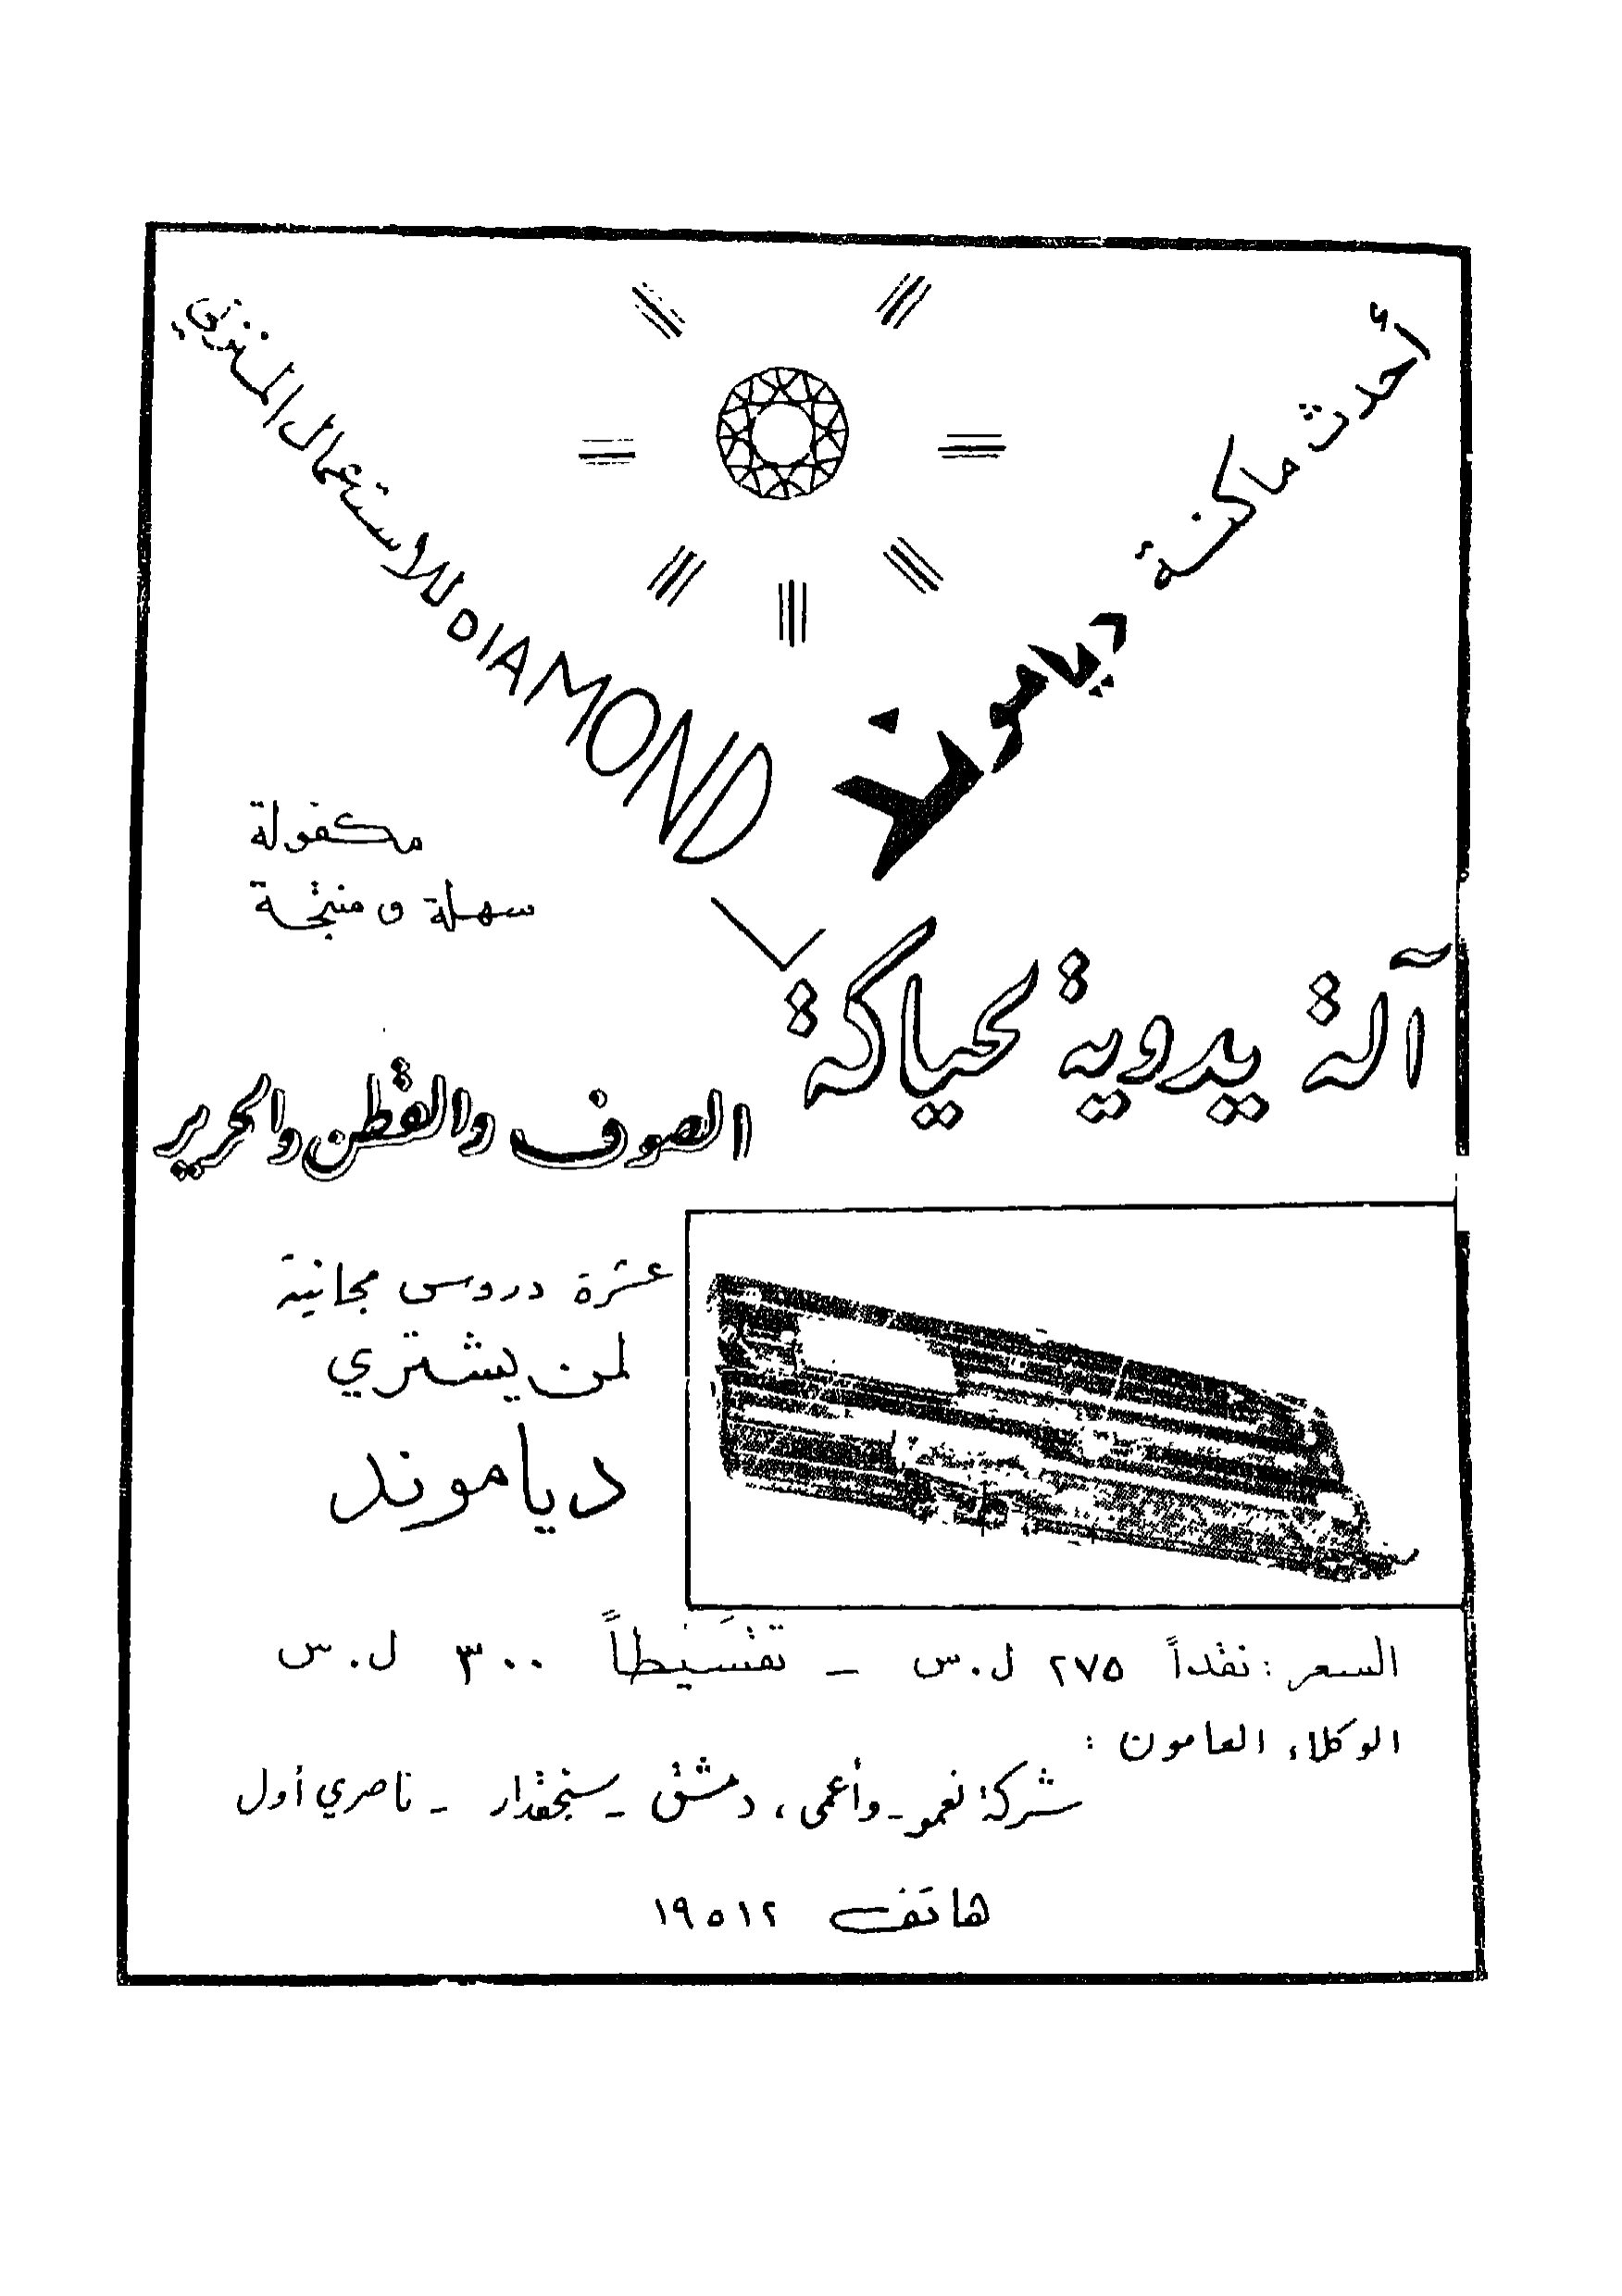 أحدث ماكنة دياموند
DIAMOND للاستعمال المنزلي
مكفولة
سهلة ومنتجة
آلة يدوية لحياكة
الصوف والقطن والحرير
عشرة دروس مجانية
لمن يشتري
دياموند
السعر: نقداً ٢٧٥ ل.س – تقسيطاً ٣٠٠ ل.س
الوكلاء العامون :
شركة نعمو - وأعمى، دمشق - سنجقدار - ناصري أول
هاتف ١٩٥١٢